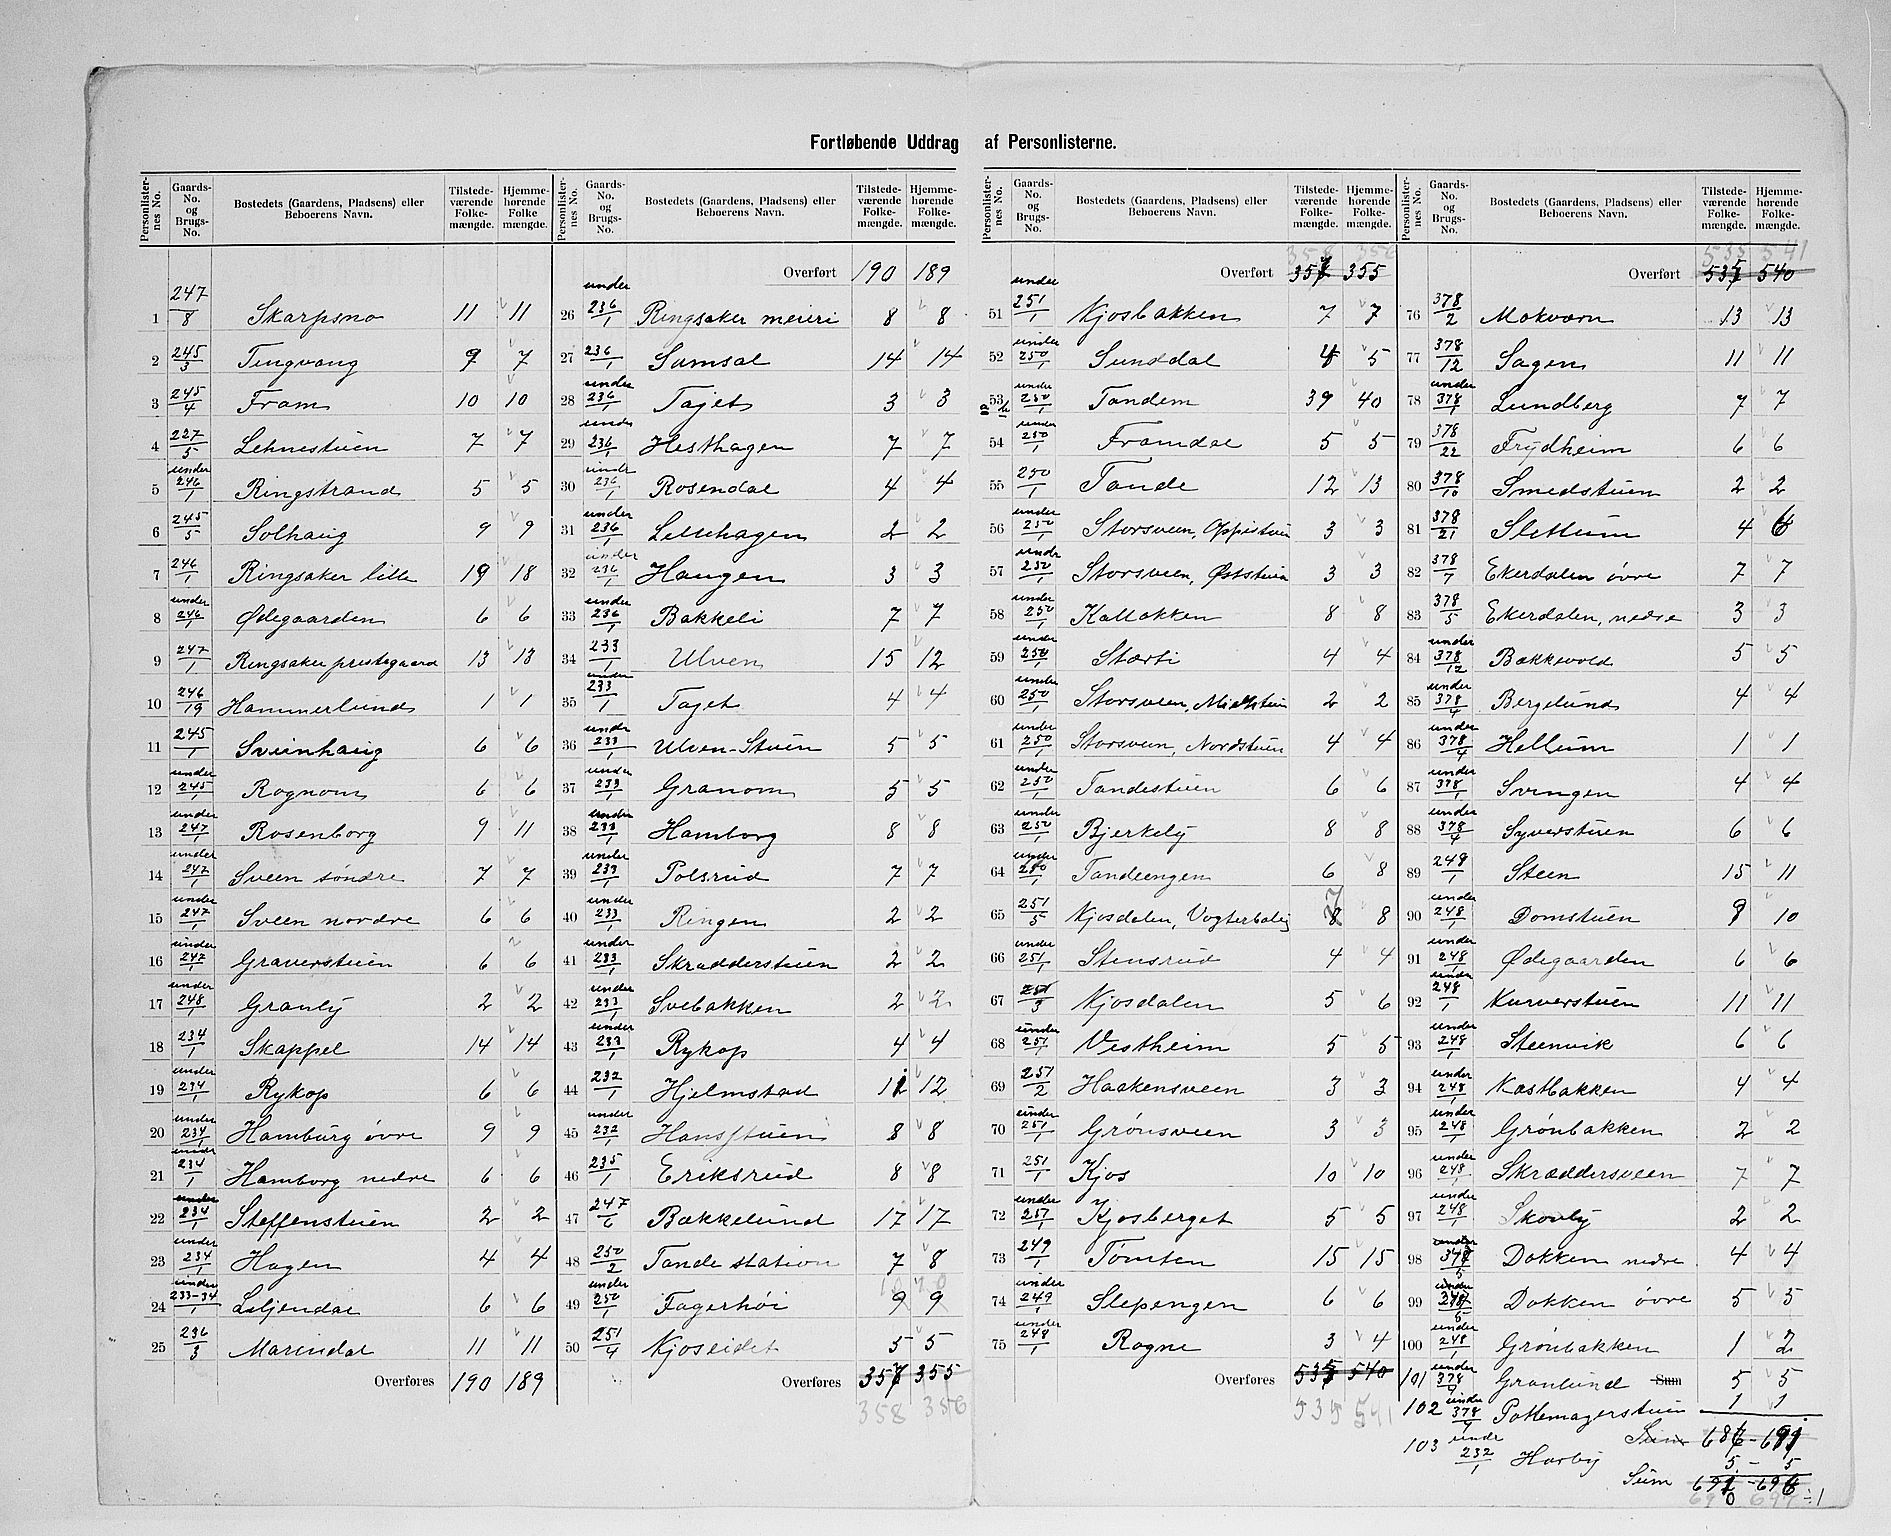 Fortløbende Uddrag af Personlisterne.
Personlisternes No. | Gaards-No. og Brugs-No. | Bostedets (Gaardens, Pladsens) eller Beboerens Navn. | Tilstedeværende Folkemængde. | Hjemmehørende Folkemængde.
1 247/8 Skarpsno 11 11
2 245/3 Tingvang 9 7
3 245/4 Fram 10 10
4 227/5 Lehnestuen 7 7
5 under 246/1 Ringstrand 5 5
6 245/5 Solhaug 9 9
7 246/1 Ringsaker lille 19 18
8 under 246/1 Ødegaarden 6 6
9 247/1 Ringsaker prestegaard 13 13
10 246/19 Hammerlund 1 1
11 245/1 Sveinhaug 6 6
12 under 245/1 Rognom 6 6
13 under 247/1 Rosenborg 9 11
14 under 247/1 Sveen søndre 7 7
15 under 247/1 Sveen nordre 6 6
16 under 247/1 Graverstuen 6 6
17 under 248/1 Granly 2 2
18 234/1 Skappel 14 14
19 under 234/1 Rykop 6 6
20 under 234/1 Hamburg øvre 9 9
21 under 234/1 Hamborg nedre 6 6
22 under 234/1 Steffenstuen 2 2
23 under 234/1 Hagen 4 4
24 under 233-34/1 Liljendal 6 6
25 236/3 Mariendal 11 11
Overføres 190 189
Overført 190 189
26 under 236/1 Ringsaker meieri 8 8
27 236/1 Samsal 14 14
28 under 236/1 Tajet 3 3
29 under 236/1 Hesthagen 7 7
30 under 236/1 Rosendal 4 4
31 under 236/1 Lillehagen 2 2
32 under 236/1 Haugen 3 3
33 under 236/1 Bakkeli 7 7
34 233/1 Ulven 15 12
35 under 233/1 Taget 4 4
36 under 233/1 Ulven-Stuen 5 5
37 under 233/1 Granom 5 5
38 under 233/1 Hamborg 8 8
39 under 233/1 Polsrud 7 7
40 under 233/1 Ringen 2 2
41 under 233/1 Skradderstuen 2 2
42 under 233/1 Svebakken 2 2
43 under 233/1 Rykop 4 4
44 232/1 Hjelmstad 11 12
45 under 232/1 Hansstuen 8 8
46 235/1 Eriksrud 8 8
47 247/6 Bækkelund 17 17
48 250/2 Tande station 7 8
49 under 250/1 Fagerhøi 9 9
50 251/4 Kjoseidet 5 5
Overføres 357 355
358 356
358 356
Overført 357 355
51 under 251/1 Kjosbakken 7 7
52 under 250/1 Sunddal 4 5
53 under 250/1 Tandem 39 40
54 under 250/1 Framdal 5 5
55 250/1 Tande 12 13
56 under 250/1 Storsveen, Oppistuen 3 3
57 under 250/1 Storsveen, Øststuen 3 3
58 under 250/1 Kalbakken 8 8
59 under 250/1 Starti 4 4
60 under 250/1 Storsveen, Midtstuen 2 2
61 under 250/1 Storsveen, Nordstuen 4 4
62 under 250/1 Tandestuen 6 6
63 under 250/1 Bjerkely 8 8
64 under 250/1 Tandeengen 6 8
65 251/5 Kjosdalen, Vogterbolig 8 7 8
66 under 251/1 Stensrud 4 4
67 251/3 Kjosdalen 5 6
68 under 251/1 Vestheim 5 5
69 251/2 Haakensveen 3 3
70 under 251/1 Grønsveen 3 3
71 251/1 Kjos 10 10
72 under 251/1 Kjosberget 5 5
73 249/1 Tømten 15 15
74 under 249/1 Slepengen 6 6
75 under 248/1 Rogne 3 4
Overføres 535 540
535 541
535 541
Overført 535 540
76 378/2 Mokvarn 13 13
77 378/12 Sagen 11 11
78 under 378/1 Lundberg 7 7
79 378/22 Frydheim 6 6
80 378/10 Smedstuen 2 2
81 378/21 Slettum 4 6
82 378/7 Ekerdalen øvre 7 7
83 378/5 Ekerdalen, nedre 3 3
84 under 378/12 Bækkevold 5 5
85 under 378/4 Bergelund 4 4
86 under 378/4 Hellum 1 1
87 under 378/1 Svingen 4 4
88 under 378/4 Syverstuen 6 6
89 248/1 Steen 15 11
90 under 248/1 Domstuen 9 10
91 under 248/1 Ødegaarden 6 6
92 under 248/1 Kurverstuen 11 11
93 under 248/1 Steenvik 6 6
94 under 248/1 Kastbakken 4 4
95 under 248/1 Grønbakken 2 2
96 under 248/1 Skræddersveen 7 7
97 under 248/1 Skovly 2 2
98 under 378/5 Dokken nedre 4 4
99 under 378/5 Dokken øvre 5 5
100 under 248/1 Grønbakken 1 2
101 under 378/9 Granlund Sum 5 5
102 under 378/9 Pottemagerstuen 1 1
Sum 686 - 691
103 under 232/1 Horby 5 - 5
Sum 691 - 696
690 696 ÷ 1